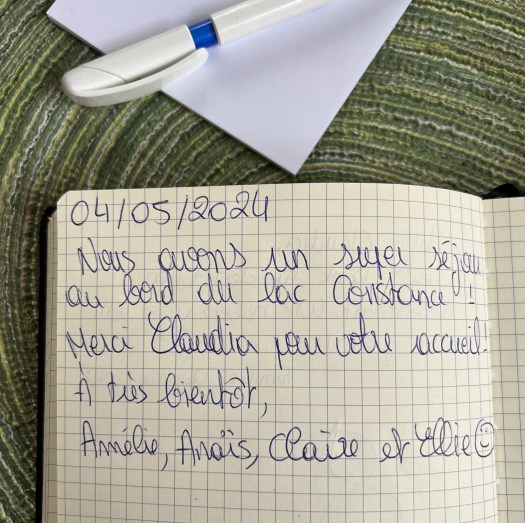 04/05/2024
Nous avons un super séjour
au bord du lac Constance !
Merci Claudia pour votre accueil!
À très bientôt,
Amélie, Anaïs, Claire et Ellie☺